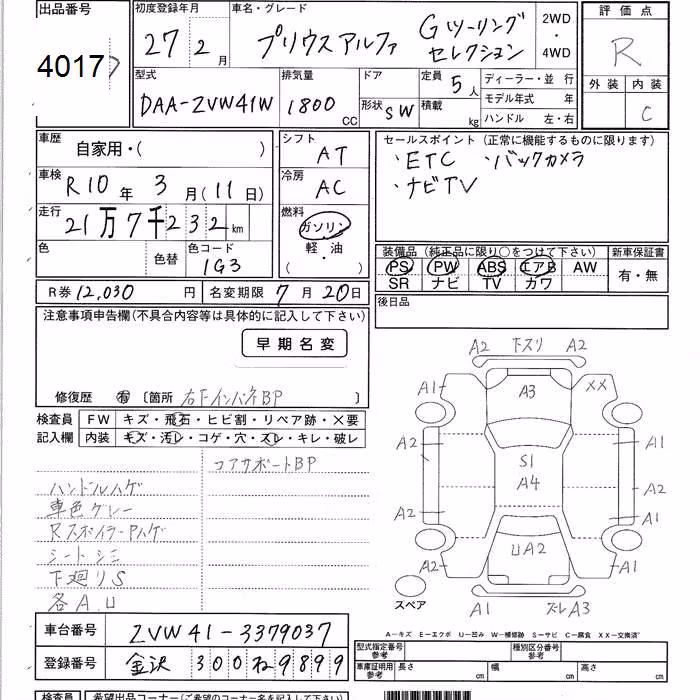 出品番号
4017
初度登録年月
27年 2月
車名・グレード
プリウスアルファ Gツーリング
セレクション
2WD
・
4WD
評価点
R
外装 内装
C
型式
DAA-ZVW41W
排気量
1800 CC
ドア
形状 SW
定員 5人
積載 kg
ディーラー・並 行
モデル年式 年
ハンドル 左・右
車歴
自家用・( )
車検
R10年 3月(11日)
走行
21万7千232km
色
色替
色コード
1G3
シフト
AT
冷房
AC
燃料
ガソリン
軽・油
( )
セールスポイント (正常に機能するものに限ります)
・ETC ・バックカメラ
・ナビTV
装備品 (純正品に限り○をつけて下さい)
PS PW ABS エアB AW
SR ナビ TV カワ
新車保証書
有・無
後日品
R券 12,030円
名変期限 7月20日
注意事項申告欄(不具合内容等は具体的に記入して下さい)
早期名変
修復歴 有 〔箇所 右FインパネBP 〕
検査員
記入欄
FW キズ・飛石・ヒビ割・リペア跡・×要
内装 キズ・汚レ・コゲ・穴・スレ・キレ・破レ
コアサポートBP
ハンドルハゲ
車色グレー
RスポイラーPハゲ
シートシミ
下廻りS
各A.U
A2 下スリ A2
A1 A3 XX
A2 A1
S1
A4 A2
A2 A1
UA2
A2 A2
スペア
A1 ズレA3
A-キズ E-エクボ U-凹み W-補修跡 S-サビ C-腐食 XX-交換済
車台番号 ZVW41-3379037
登録番号 金沢 300 ね 9899
型式指定番号
参考
種別区分番号
参考
車庫証明用
参考
長さ cm 幅 cm 高さ cm
検査員
希望出品コーナー(ご希望のコーナー名を記入して下さい)